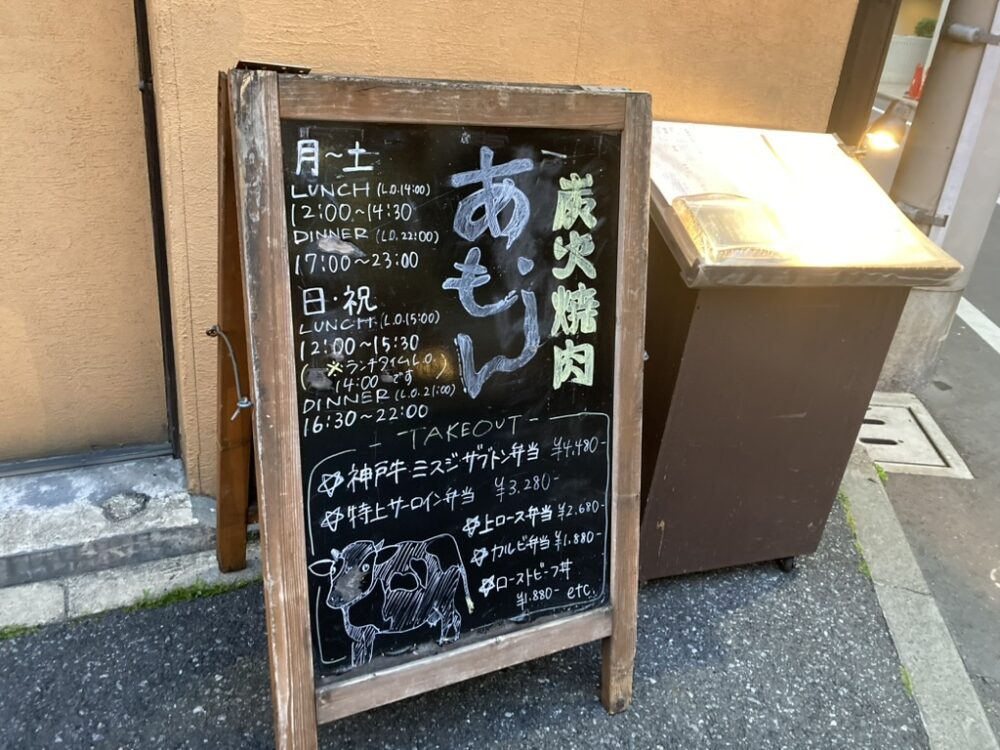 炭火焼肉
あもん
月~土
LUNCH (L.O.14:00)
12:00~14:30
DINNER (L.O.22:00)
17:00~23:00
日・祝
LUNCH (L.O.15:00)
12:00~15:30
(※ランチタイムL.O.
14:00です)
DINNER (L.O.21:00)
16:30~22:00
-TAKEOUT-
☆神戸牛・ミスジ・ザブトン弁当 ¥4.480-
☆特上サーロイン弁当 ¥3.280-
☆上ロース弁当 ¥2.680-
☆カルビ弁当 ¥1.880-
☆ローストビーフ丼
¥1.880- etc.